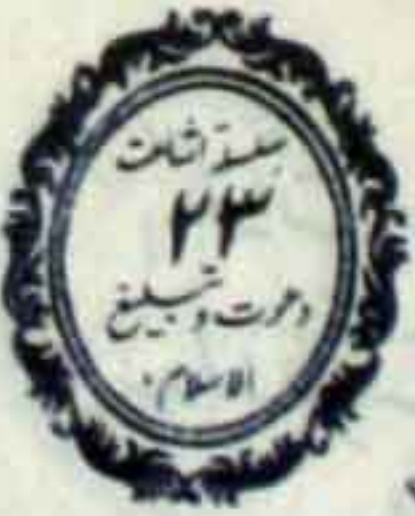 سلسلۂ اشاعت
۲۳
دعوت و تبلیغ
الاسلام